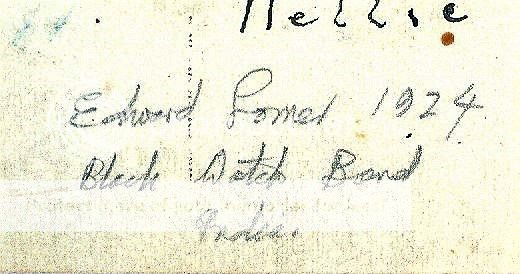 Nellie
Edward Lomer 1924
Black Watch Band
India.